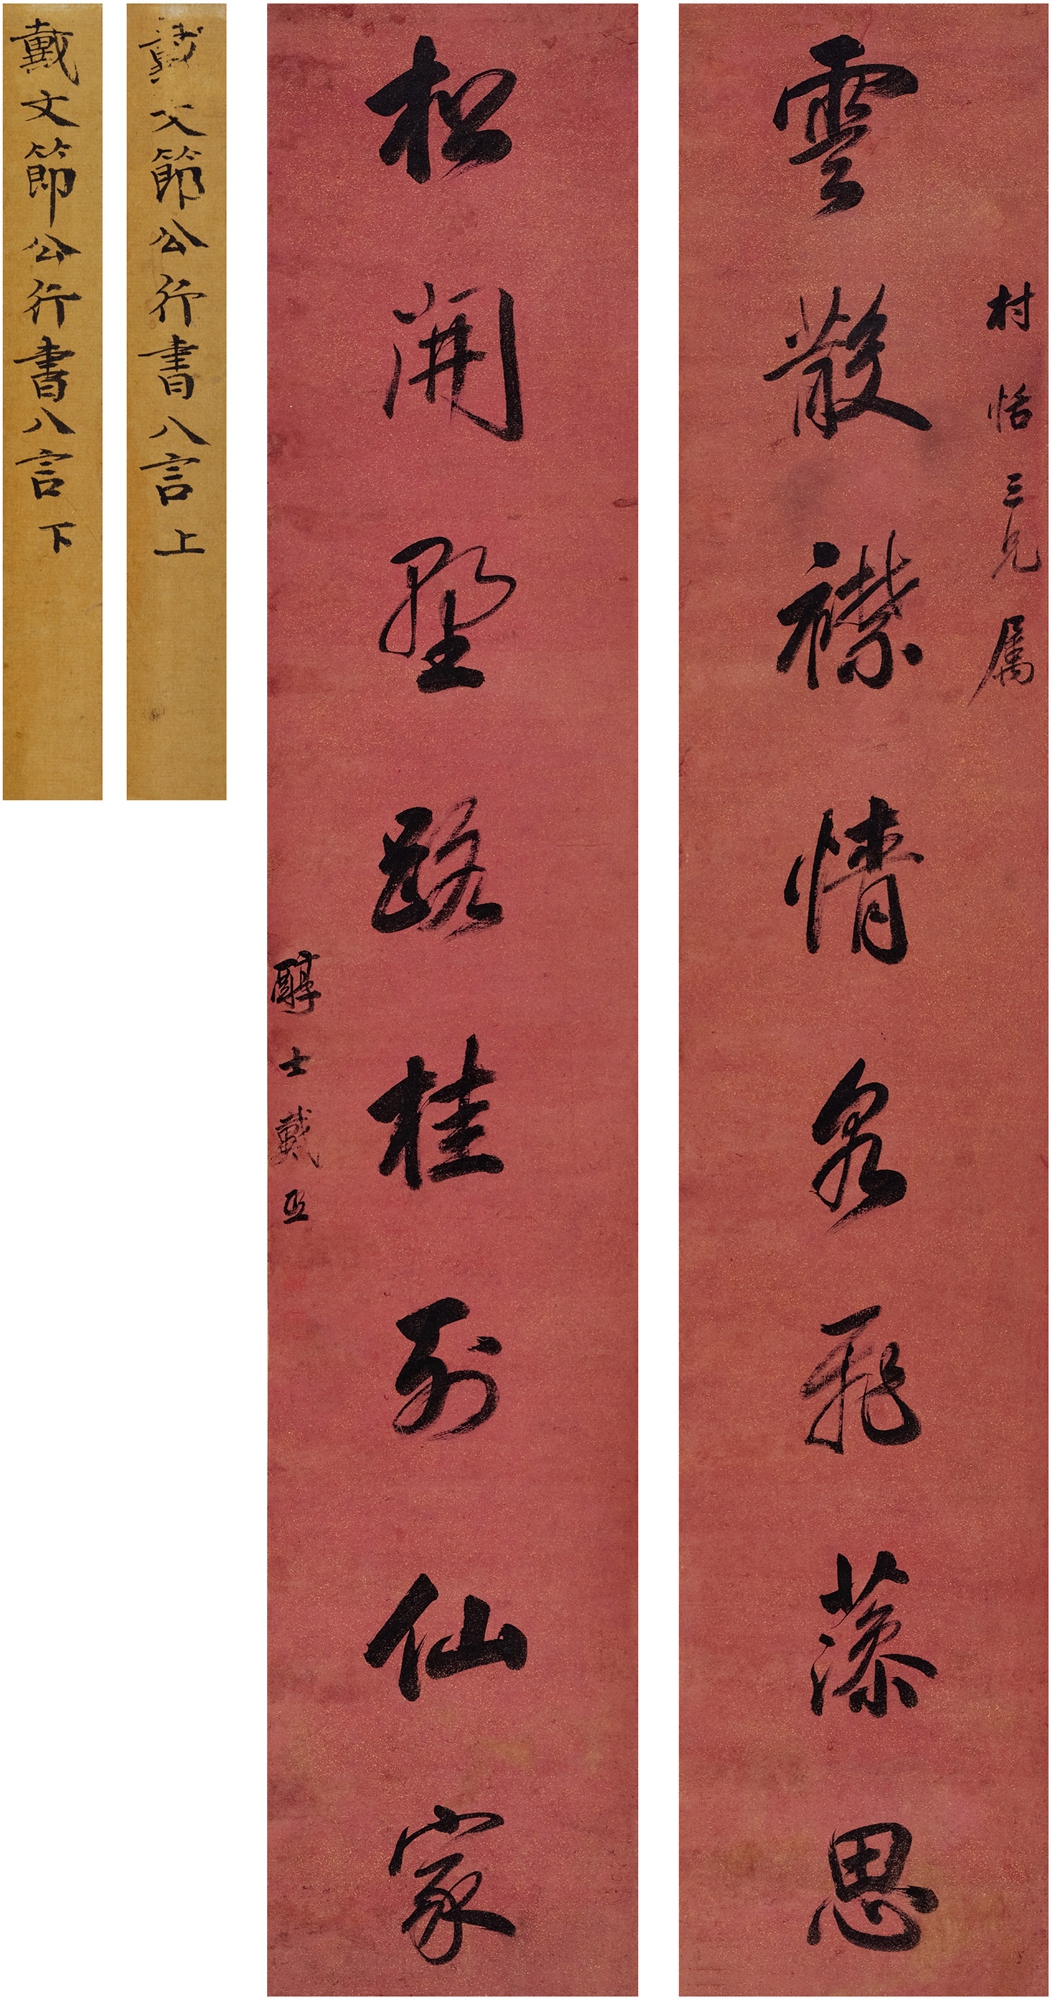 村恬三兄属
雲散襟情泉飛藻思
松開野路桂列仙家
醇士戴熙
戴文節公行書八言上
戴文節公行書八言下